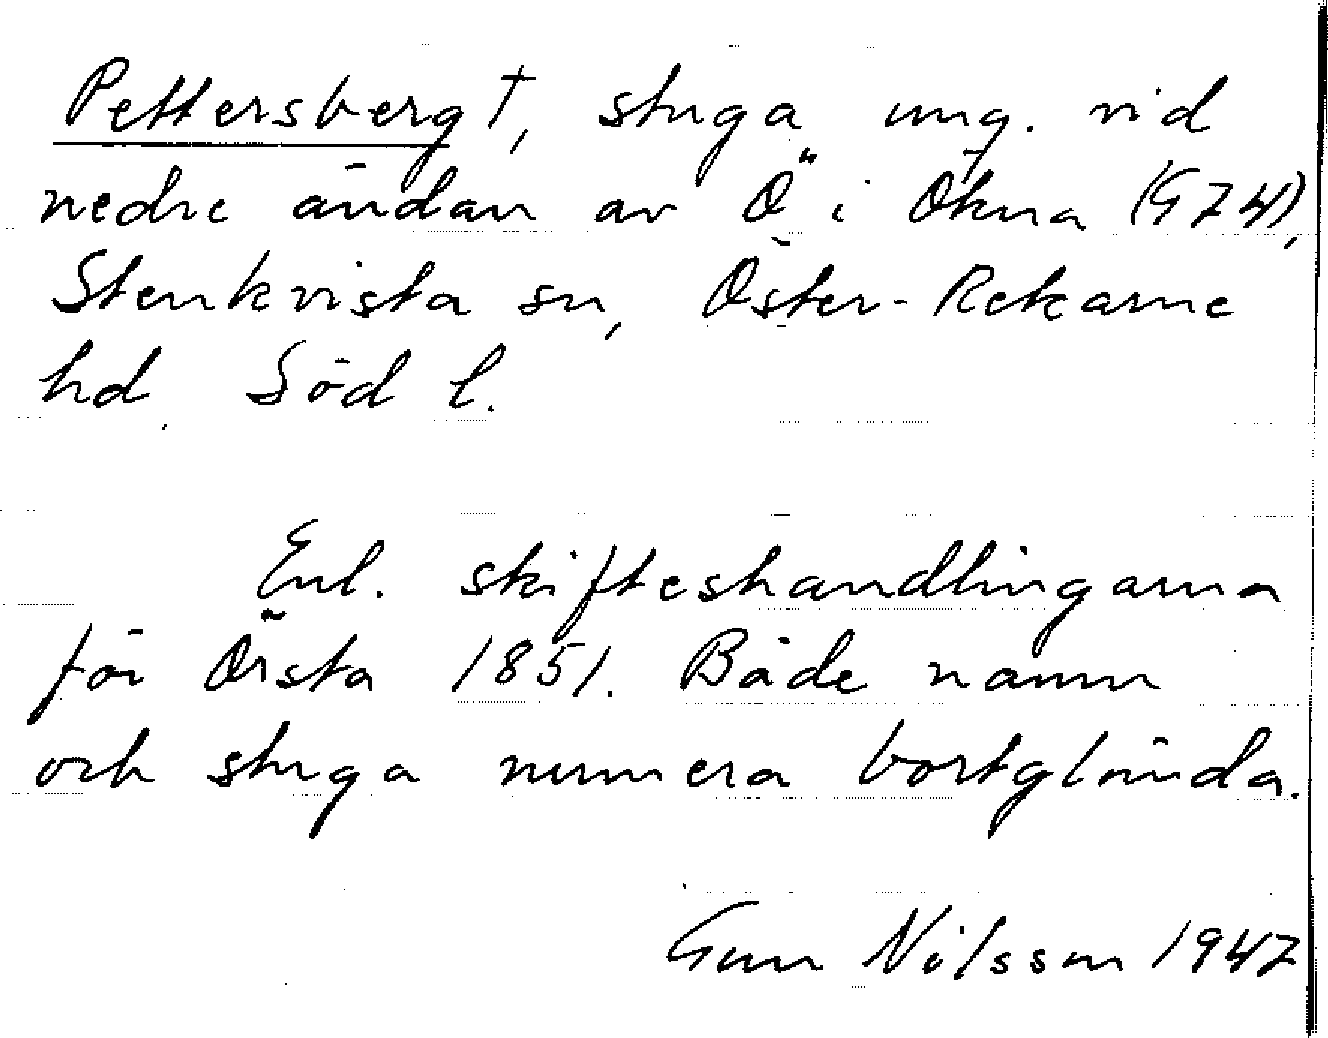 Pettersberg †, stuga ung. vid
nedre ändan av "Ö" i Ökna (G74),
Stenkvista sn, Öster-Rekarne
hd. Söd l.
Enl. skifteshandlingarna
för Örsta 1851. Både namn
och stuga numera bortglömda.
Gun Nilsson 1947